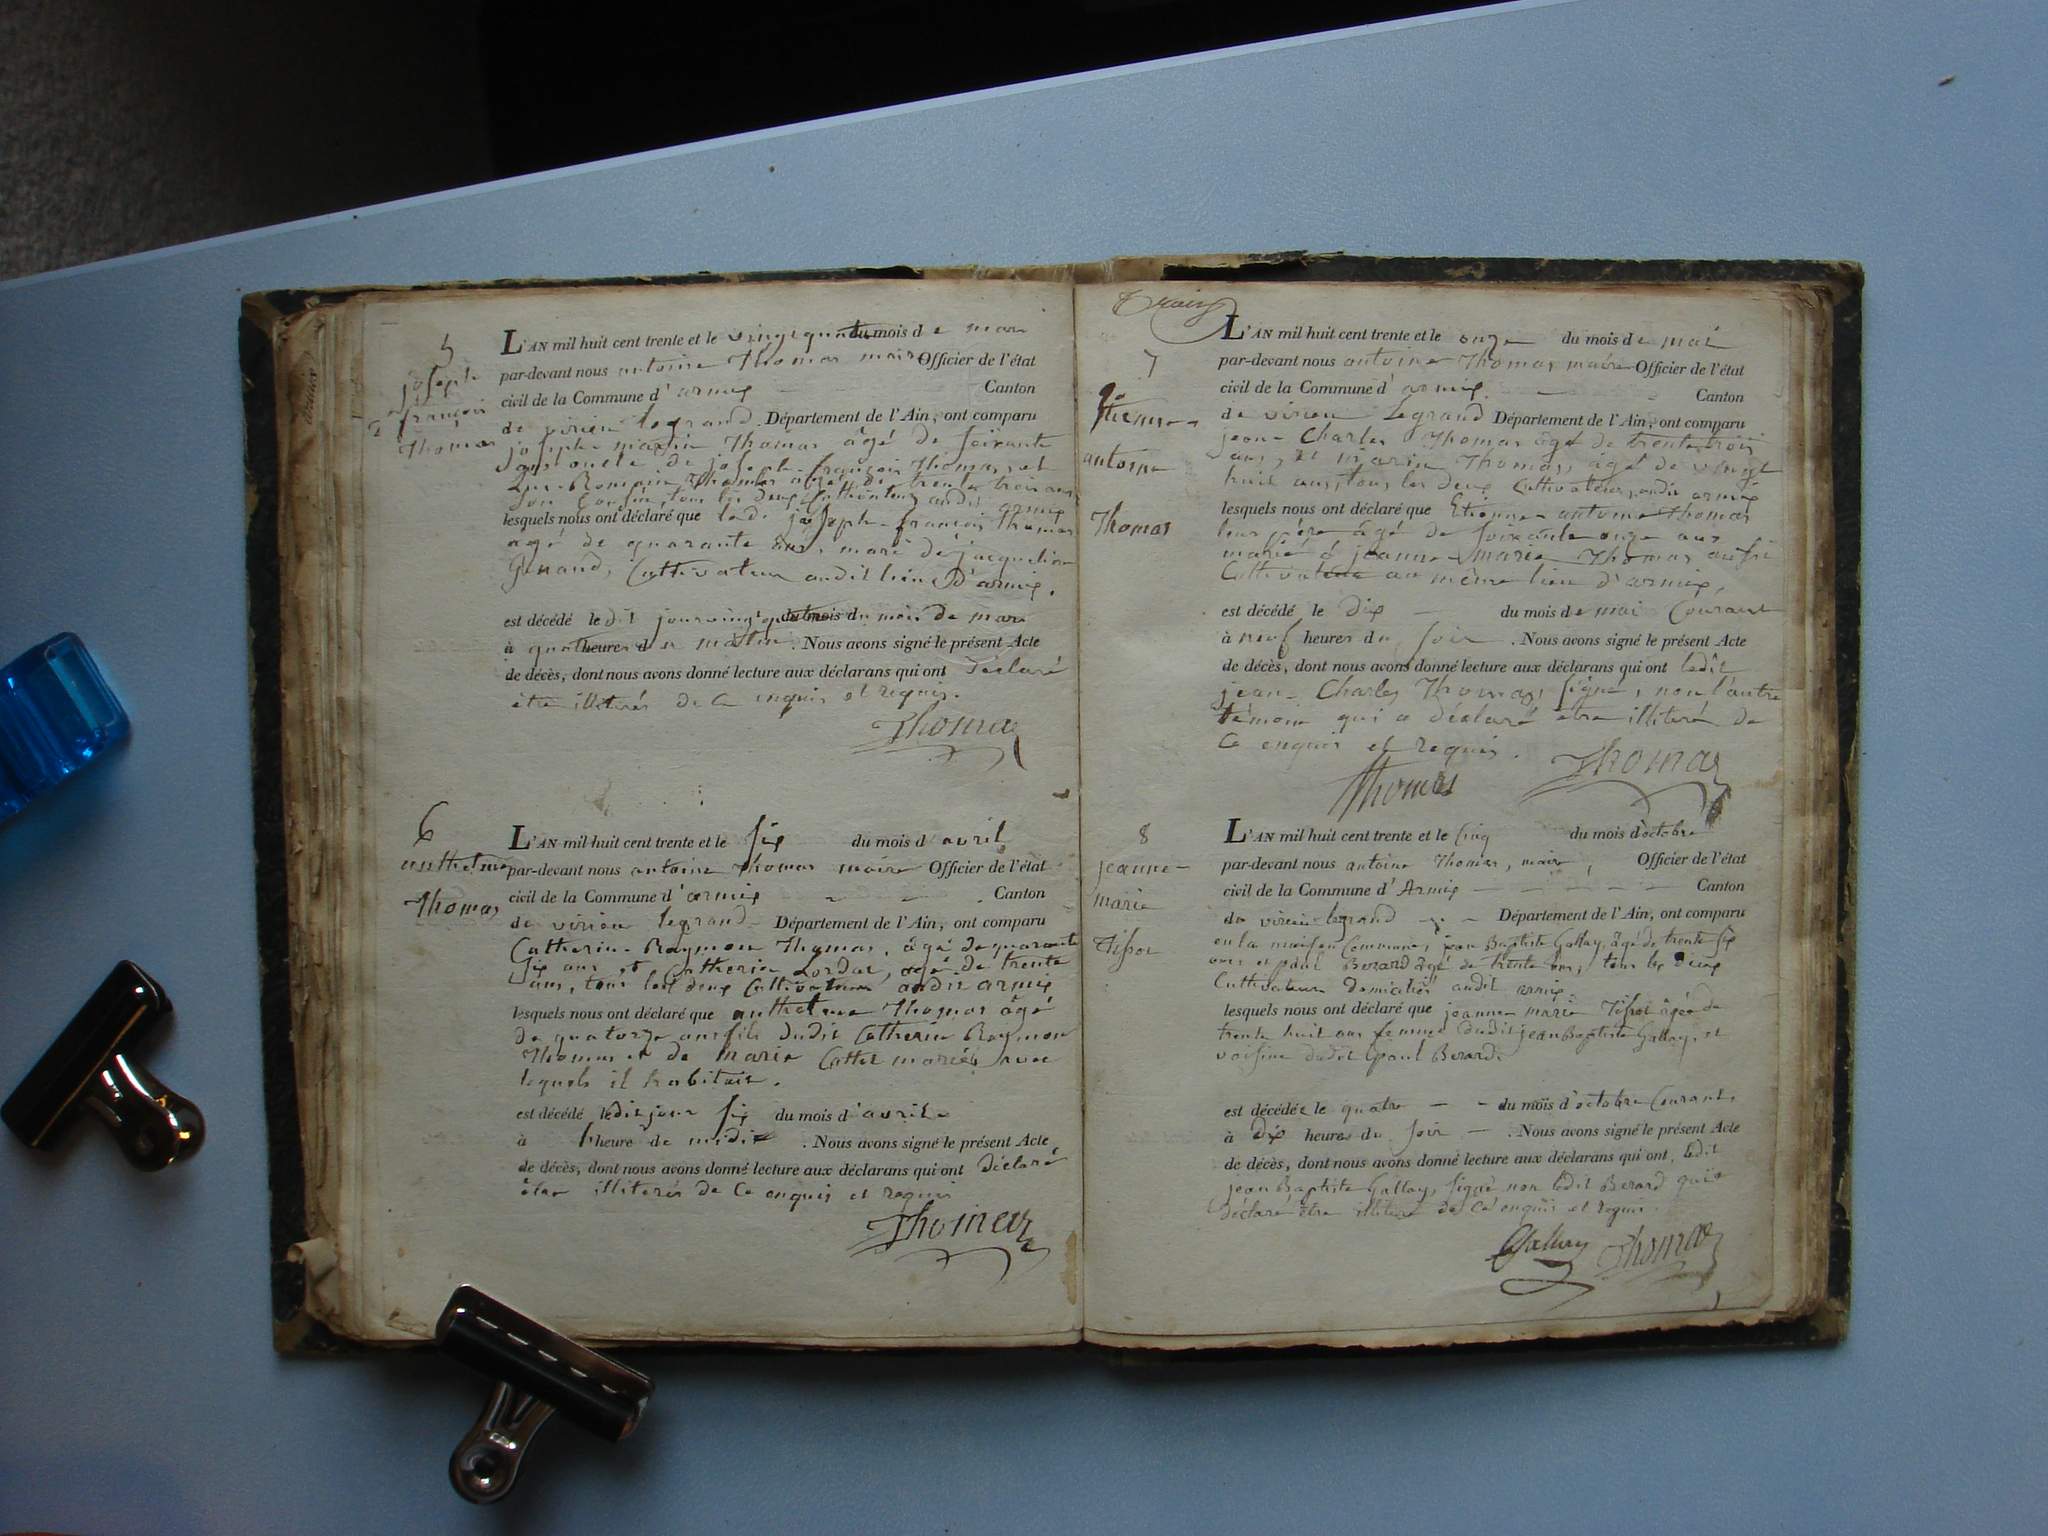 5
joseph
françois
Thomas
L'AN mil huit cent trente et le vingt quatre du mois de mars
par-devant nous antoine Thomas maire Officier de l'état
civil de la Commune d'armix Canton
de virieu legrand. Département de l'Ain, ont comparu
joseph marie Thomas âgé de soixante
ans oncle de joseph-françois Thomas, et
Romain Thomas âgé de trente trois ans
son cousin, tous les deux Cultivateurs audit armix
lesquels nous ont déclaré que ledi joseph-françois Thomas
agé de quarante ans, marié de jacqueline
Cultivateur audit lieu d'armix.
est décédé le dit jour vingt quatre du mois de mars
à quatre heures du matin. Nous avons signé le présent Acte
de décès, dont nous avons donné lecture aux déclarans qui ont déclaré
être illiterés de Ce enquis et requis.
Thomas
6
anthelme
Thomas
L'AN mil huit cent trente et le six du mois d'avril
par-devant nous antoine Thomas maire Officier de l'état
civil de la Commune d'armix Canton
de virieu legrand Département de l'Ain, ont comparu
Catherin-Raymon Thomas, âgé de quarante
six ans et Catherin âgé de trente
ans, tous les deux Cultivateurs audit armix
lesquels nous ont déclaré que anthelme Thomas âgé
de quatorze ans fils dudit Catherin Raymon
Thomas et de marie Cattet mariés avec
lequels il habitait.
est décédé ledit jour six du mois d'avril
à heure de midi. Nous avons signé le présent Acte
de décès, dont nous avons donné lecture aux déclarans qui ont déclaré
être illiterés de Ce enquis et requis
Thomas
7
Etienne-
antoine
Thomas
L'AN mil huit cent trente et le onze du mois de mai
par-devant nous antoine Thomas maire Officier de l'état
civil de la Commune d'armix. Canton
de virieu Legrand Département de l'Ain, ont comparu
jean-Charles Thomas âgé de trente trois
ans, et marin Thomas, âgé de vingt
huit ans, tous les deux Cultivateurs, audit armix
lesquels nous ont déclaré que Etienne-antoine Thomas
leur père âgé de soixante onze ans
marié à jeanne-marie Thomas aussi
Cultivateur au même lieu d'armix,
est décédé le dix du mois de mai Courant
à neuf heures du soir. Nous avons signé le présent Acte
de décès, dont nous avons donné lecture aux déclarans qui ont ledit
jean-Charles Thomas, signé, non l'autre
témoin qui a déclaré être illiteré de
Ce enquis et requis.
Thomas Thomas
8
jeanne-
marie
Tissot
L'AN mil huit cent trente et le cinq du mois d'octobre
par-devant nous antoine Thomas, maire, Officier de l'état
civil de la Commune d'Armix Canton
de virieu legrand Département de l'Ain, ont comparu
en la maison Commune, jean Baptiste Gallay, âgé de trente six
ans et paul Berard âgé de trente ans, tous les deux
Cultivateurs domiciliés audit armix
lesquels nous ont déclaré que jeanne marie Tissot âgée de
trente huit ans femme dudit jean Baptiste Gallay, et
voisine dudit paul Berard.
est décédée le quatre du mois d'octobre Courant,
à dix heures du soir. Nous avons signé le présent Acte
de décès, dont nous avons donné lecture aux déclarans qui ont, ledit
jean Baptiste Gallay, signé non ledit Berard qui a
déclaré être illiteré de Ce enquis et requis.
Gallay Thomas